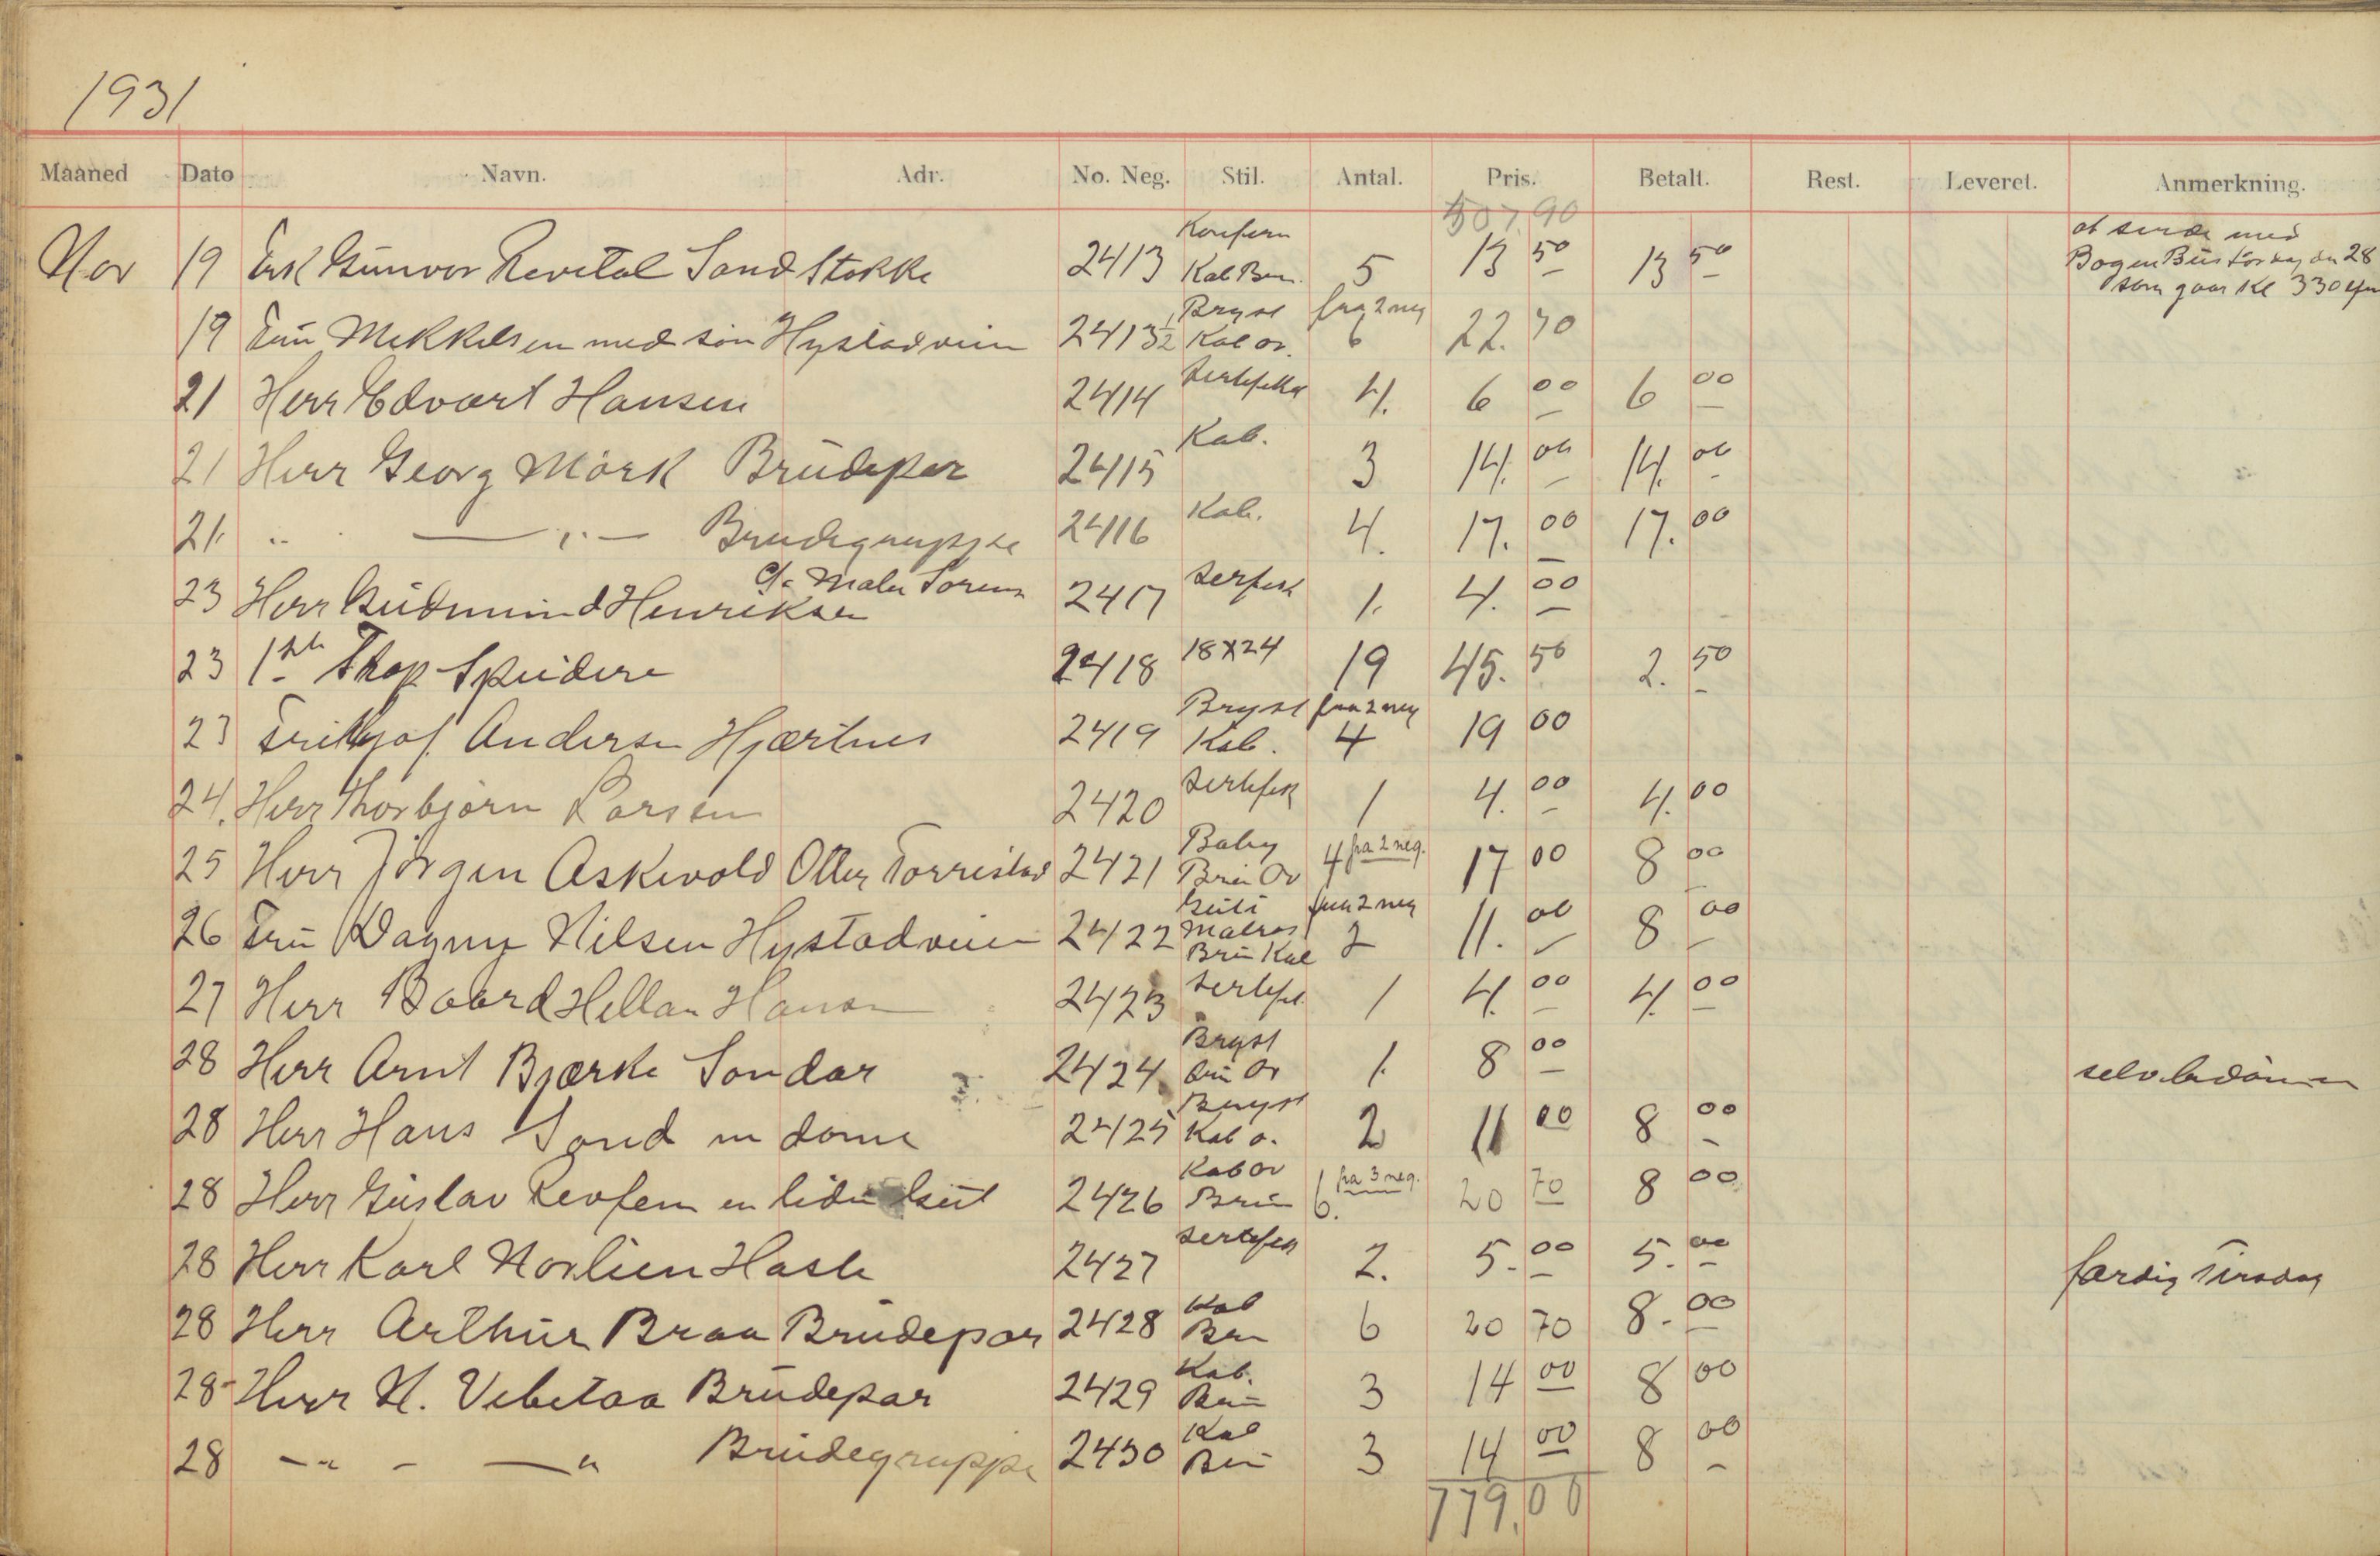 1931
Maaned Dato Navn. Adr. No. Neg. Stil. Antal. Pris. Betalt. Rest. Leveret. Anmerkning.
507.90
Nov 19 Frk Gunvor Revetal Sand Stokke 2413 Konferm Kab Brun. 5 13 50 13 50 at sende med Bogen Bus Lørdag den 28 som gaar Kl 330
19 Fru Mekkelsen med søn Hystadveien 2413½ Bryst Kab ov. fra 2 neg 6 22. 70
21 Herr Edvart Hansen 2414 Sertefika 4. 6 00 6 00
21 Herr Georg Mörk Brudepar 2415 Kab. 3 14. 00 14. 00
21. Brudegruppe 2416 Kab. 4. 17. 00 17. 00
23 Herr Gudmund Henriksen c/o Maler 2417 Serfek 1. 4. 00
23 1ste Speidere 2418 18X24 19 45. 50 2. 50
23 Frithjof Andersen Hjærtnes 2419 Bryst Kab. fra 2 neg 4 19 00
24. Herr Thorbjørn Larsen 2420 Sertefek 1 4. 00 4. 00
25 Herr Jörgen Askevold Otter Torrestad 2421 Baby Brun Ov 4 fra 2 neg. 17 00 8 00
26 Fru Dagny Nilsen Hystadveien 2422 Gut i Matros Brun Kab fra 2 neg 2 11. 00 8 00
27 Herr Baard Hellan Hansen 2423 Sertefek 1 4. 00 4. 00
28 Herr Arnt Bjærke Sandar 2424 Bryst Brun Ov 1. 8 00
28 Herr Hans Sand m dame 2425 Bryst Kab o. 2 11 00 8 00
28 Herr Gustav en liden Gut 2426 Kab ov Brun 6. fra 3 neg. 20 70 8 00
28 Herr Karl Norlien Hasle 2427 Sertefek 2. 5. 00 5. 00 færdig Tirsdag
28 Herr Arthur Braa Brudepar 2428 Kab Brun 6 20 70 8. 00
28 Herr H. Vebetaa Brudepar 2429 Kab. Brun 3 14 00 8 00
28 Brudegruppe 2430 Kab Brun 3 14 00 8 00
779.00